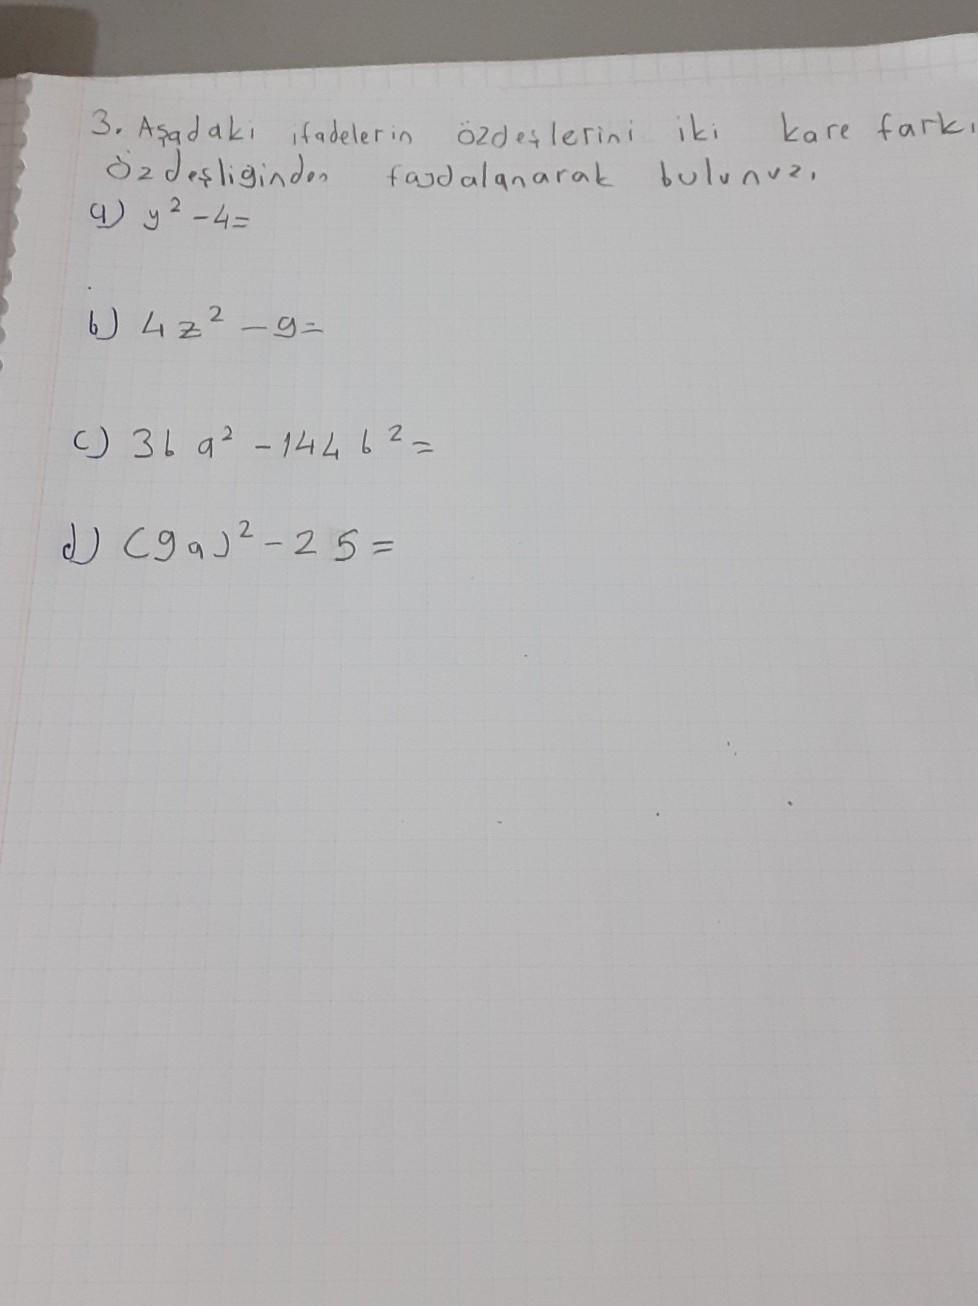 3. Aşadaki ifadelerin özdeşlerini iki kare farkı
Özdeşliginden faydalanarak bulunuz.
a) y² - 4 =
b) 4z² - 9 =
c) 36 a² - 144 b² =
d) (9a)² - 25 =